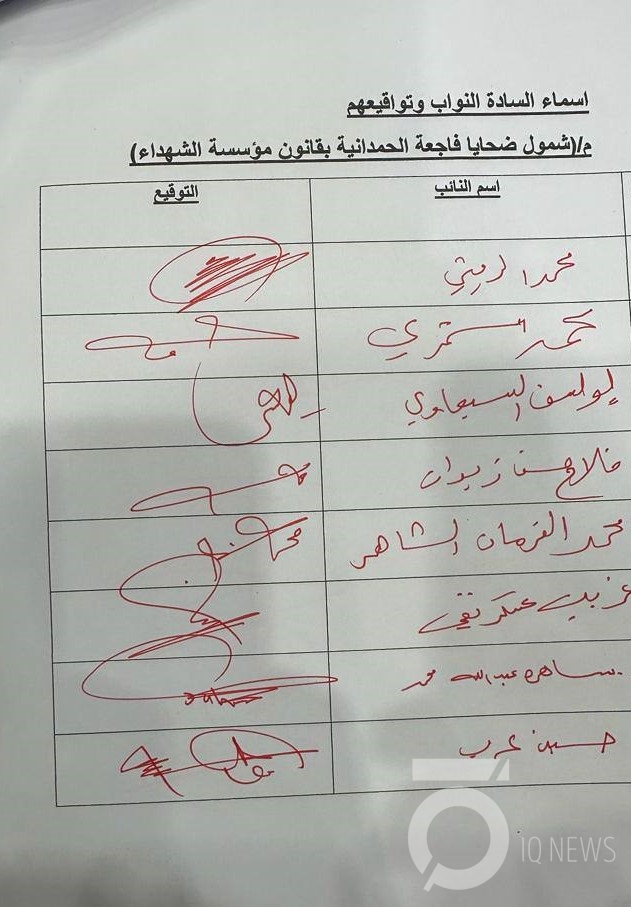 اسماء السادة النواب وتواقيعهم
م/(شمول ضحايا فاجعة الحمدانية بقانون مؤسسة الشهداء)
اسم النائب
التوقيع
محمد
محمد الشمري
يوسف السبعاوي
فلاح حسن زيدان
محمد الفرمان الشاهر
ساهرة عبدالله محمد
حسين عرب
IQ NEWS